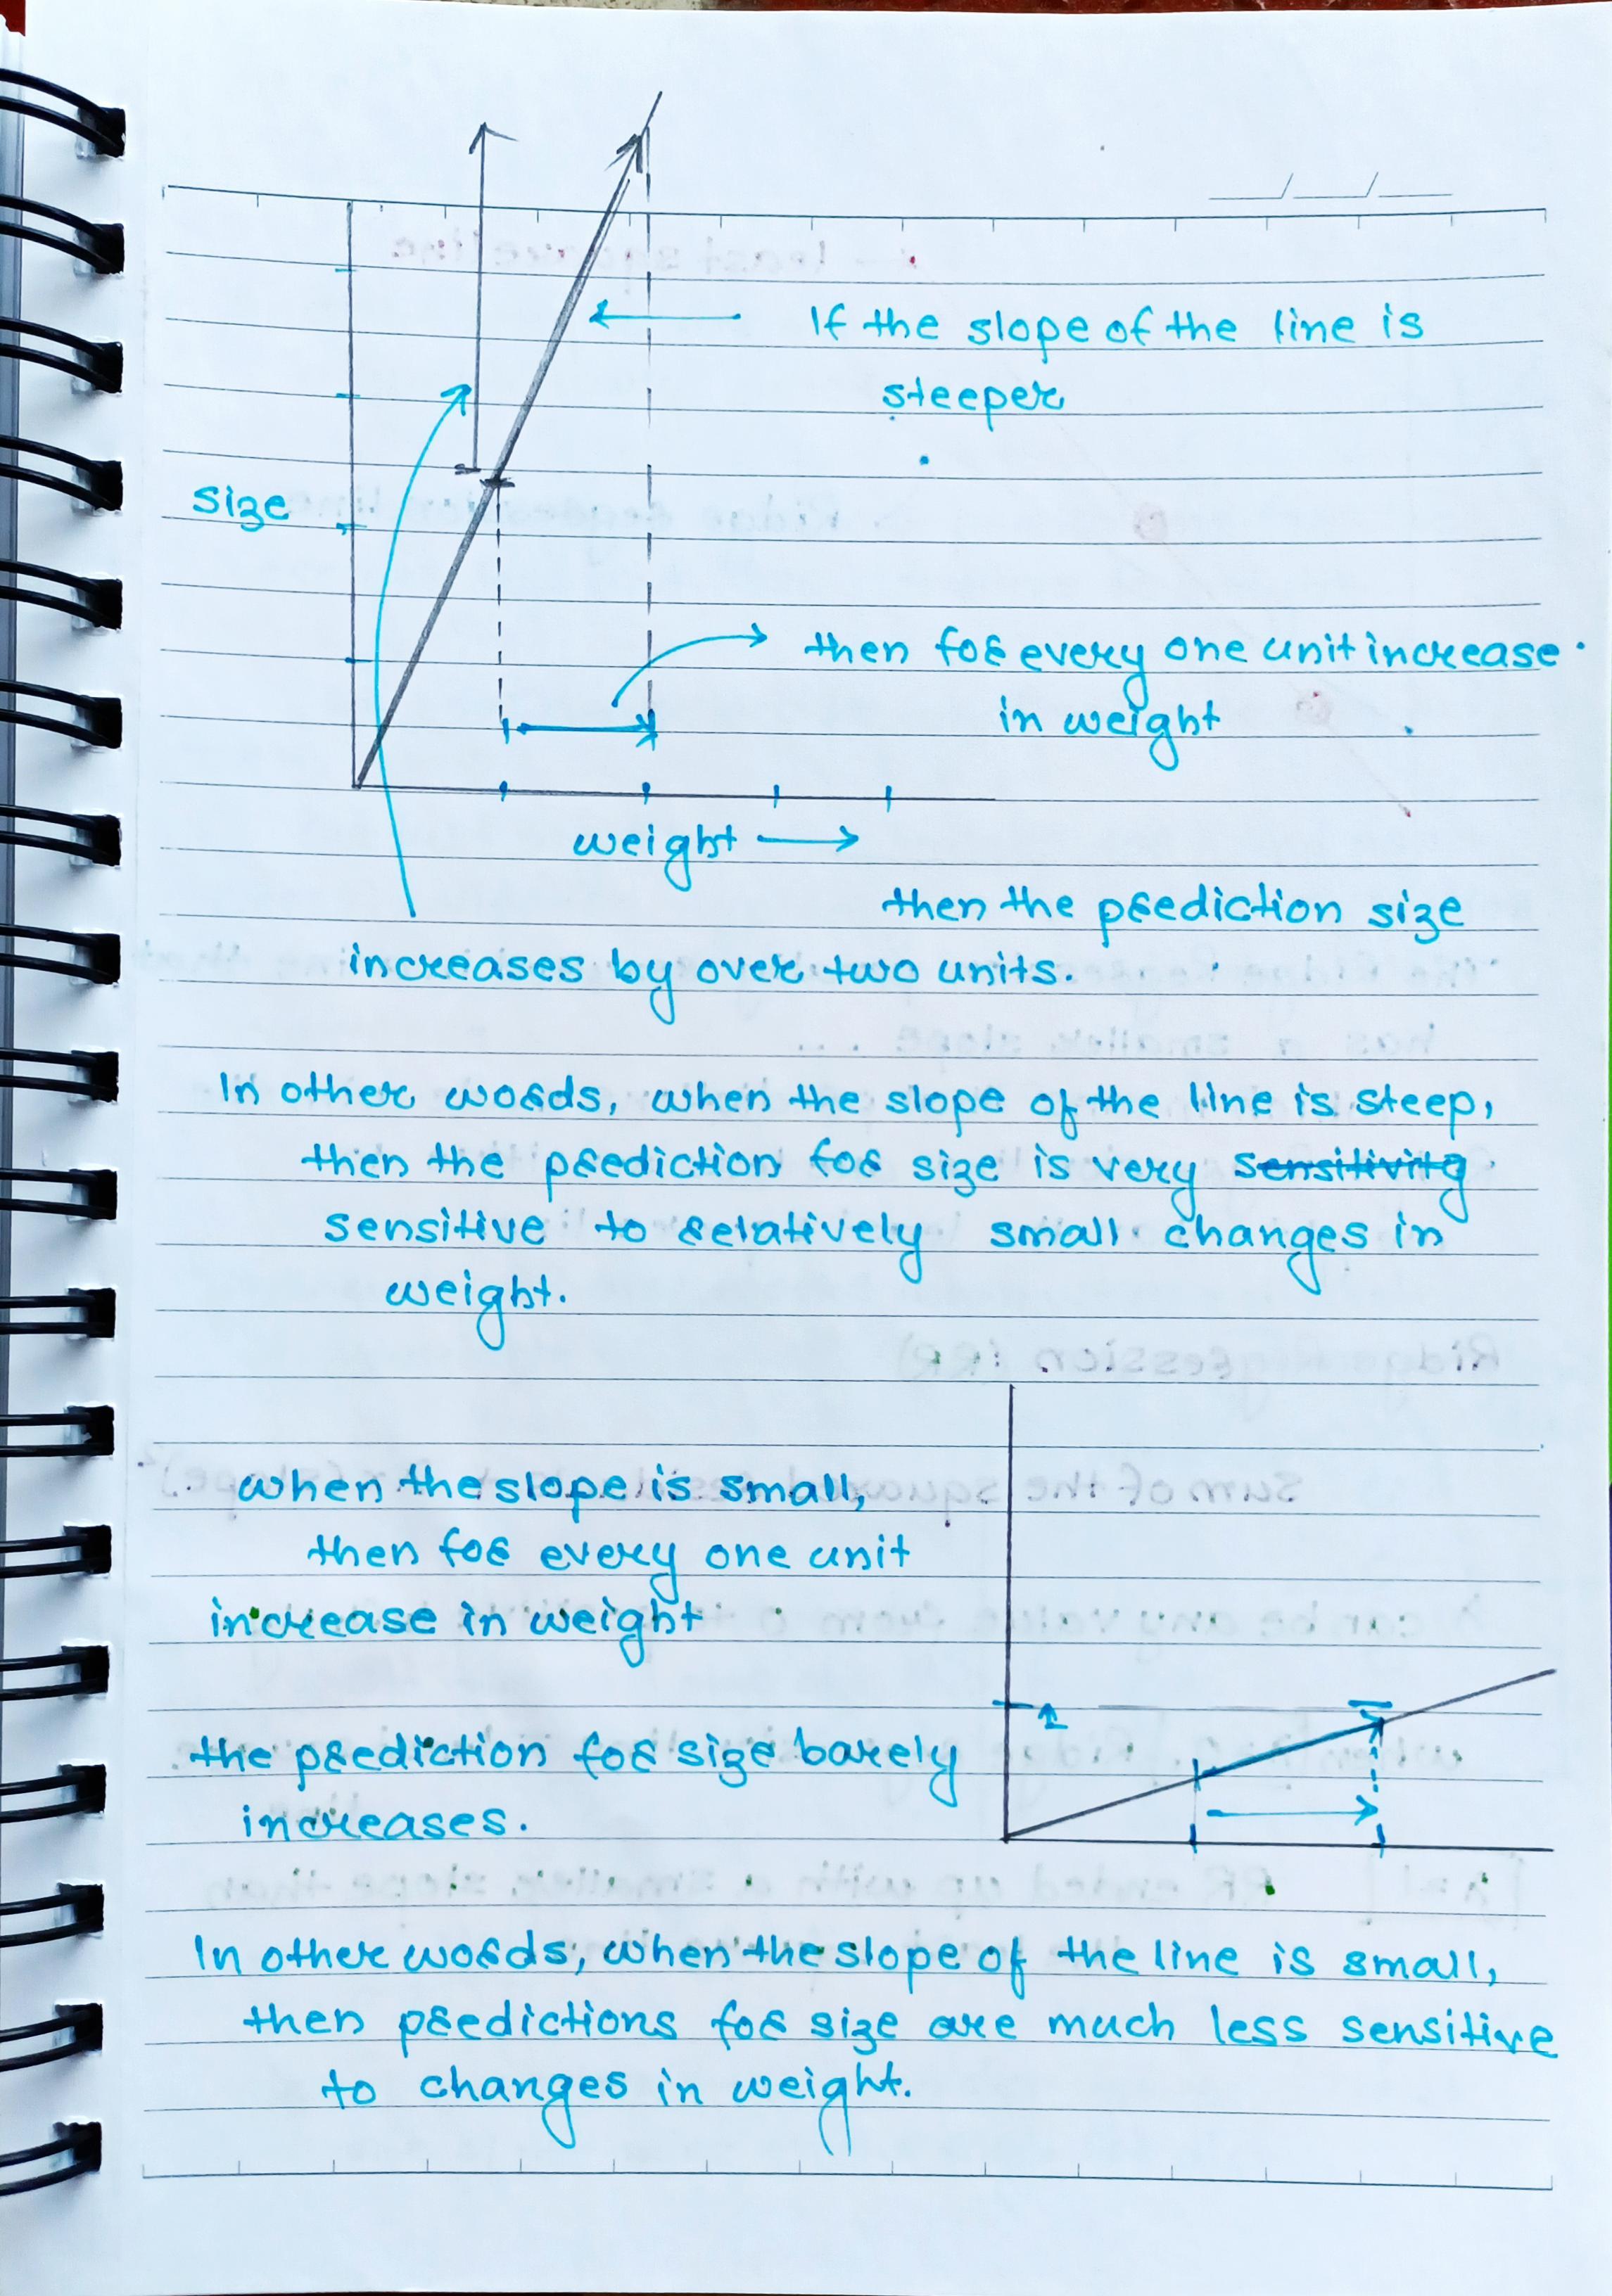 If the slope of the line is
steeper
size
then for every one unit increase
in weight
weight
then the prediction size
increases by over two units.
In other words, when the slope of the line is steep,
then the prediction for size is very sensitivity
sensitive to relatively small changes in
weight.
when the slope is small,
then for every one unit
increase in weight
the prediction for size barely
increases.
In other words, when the slope of the line is small,
then predictions for size are much less sensitive
to changes in weight.